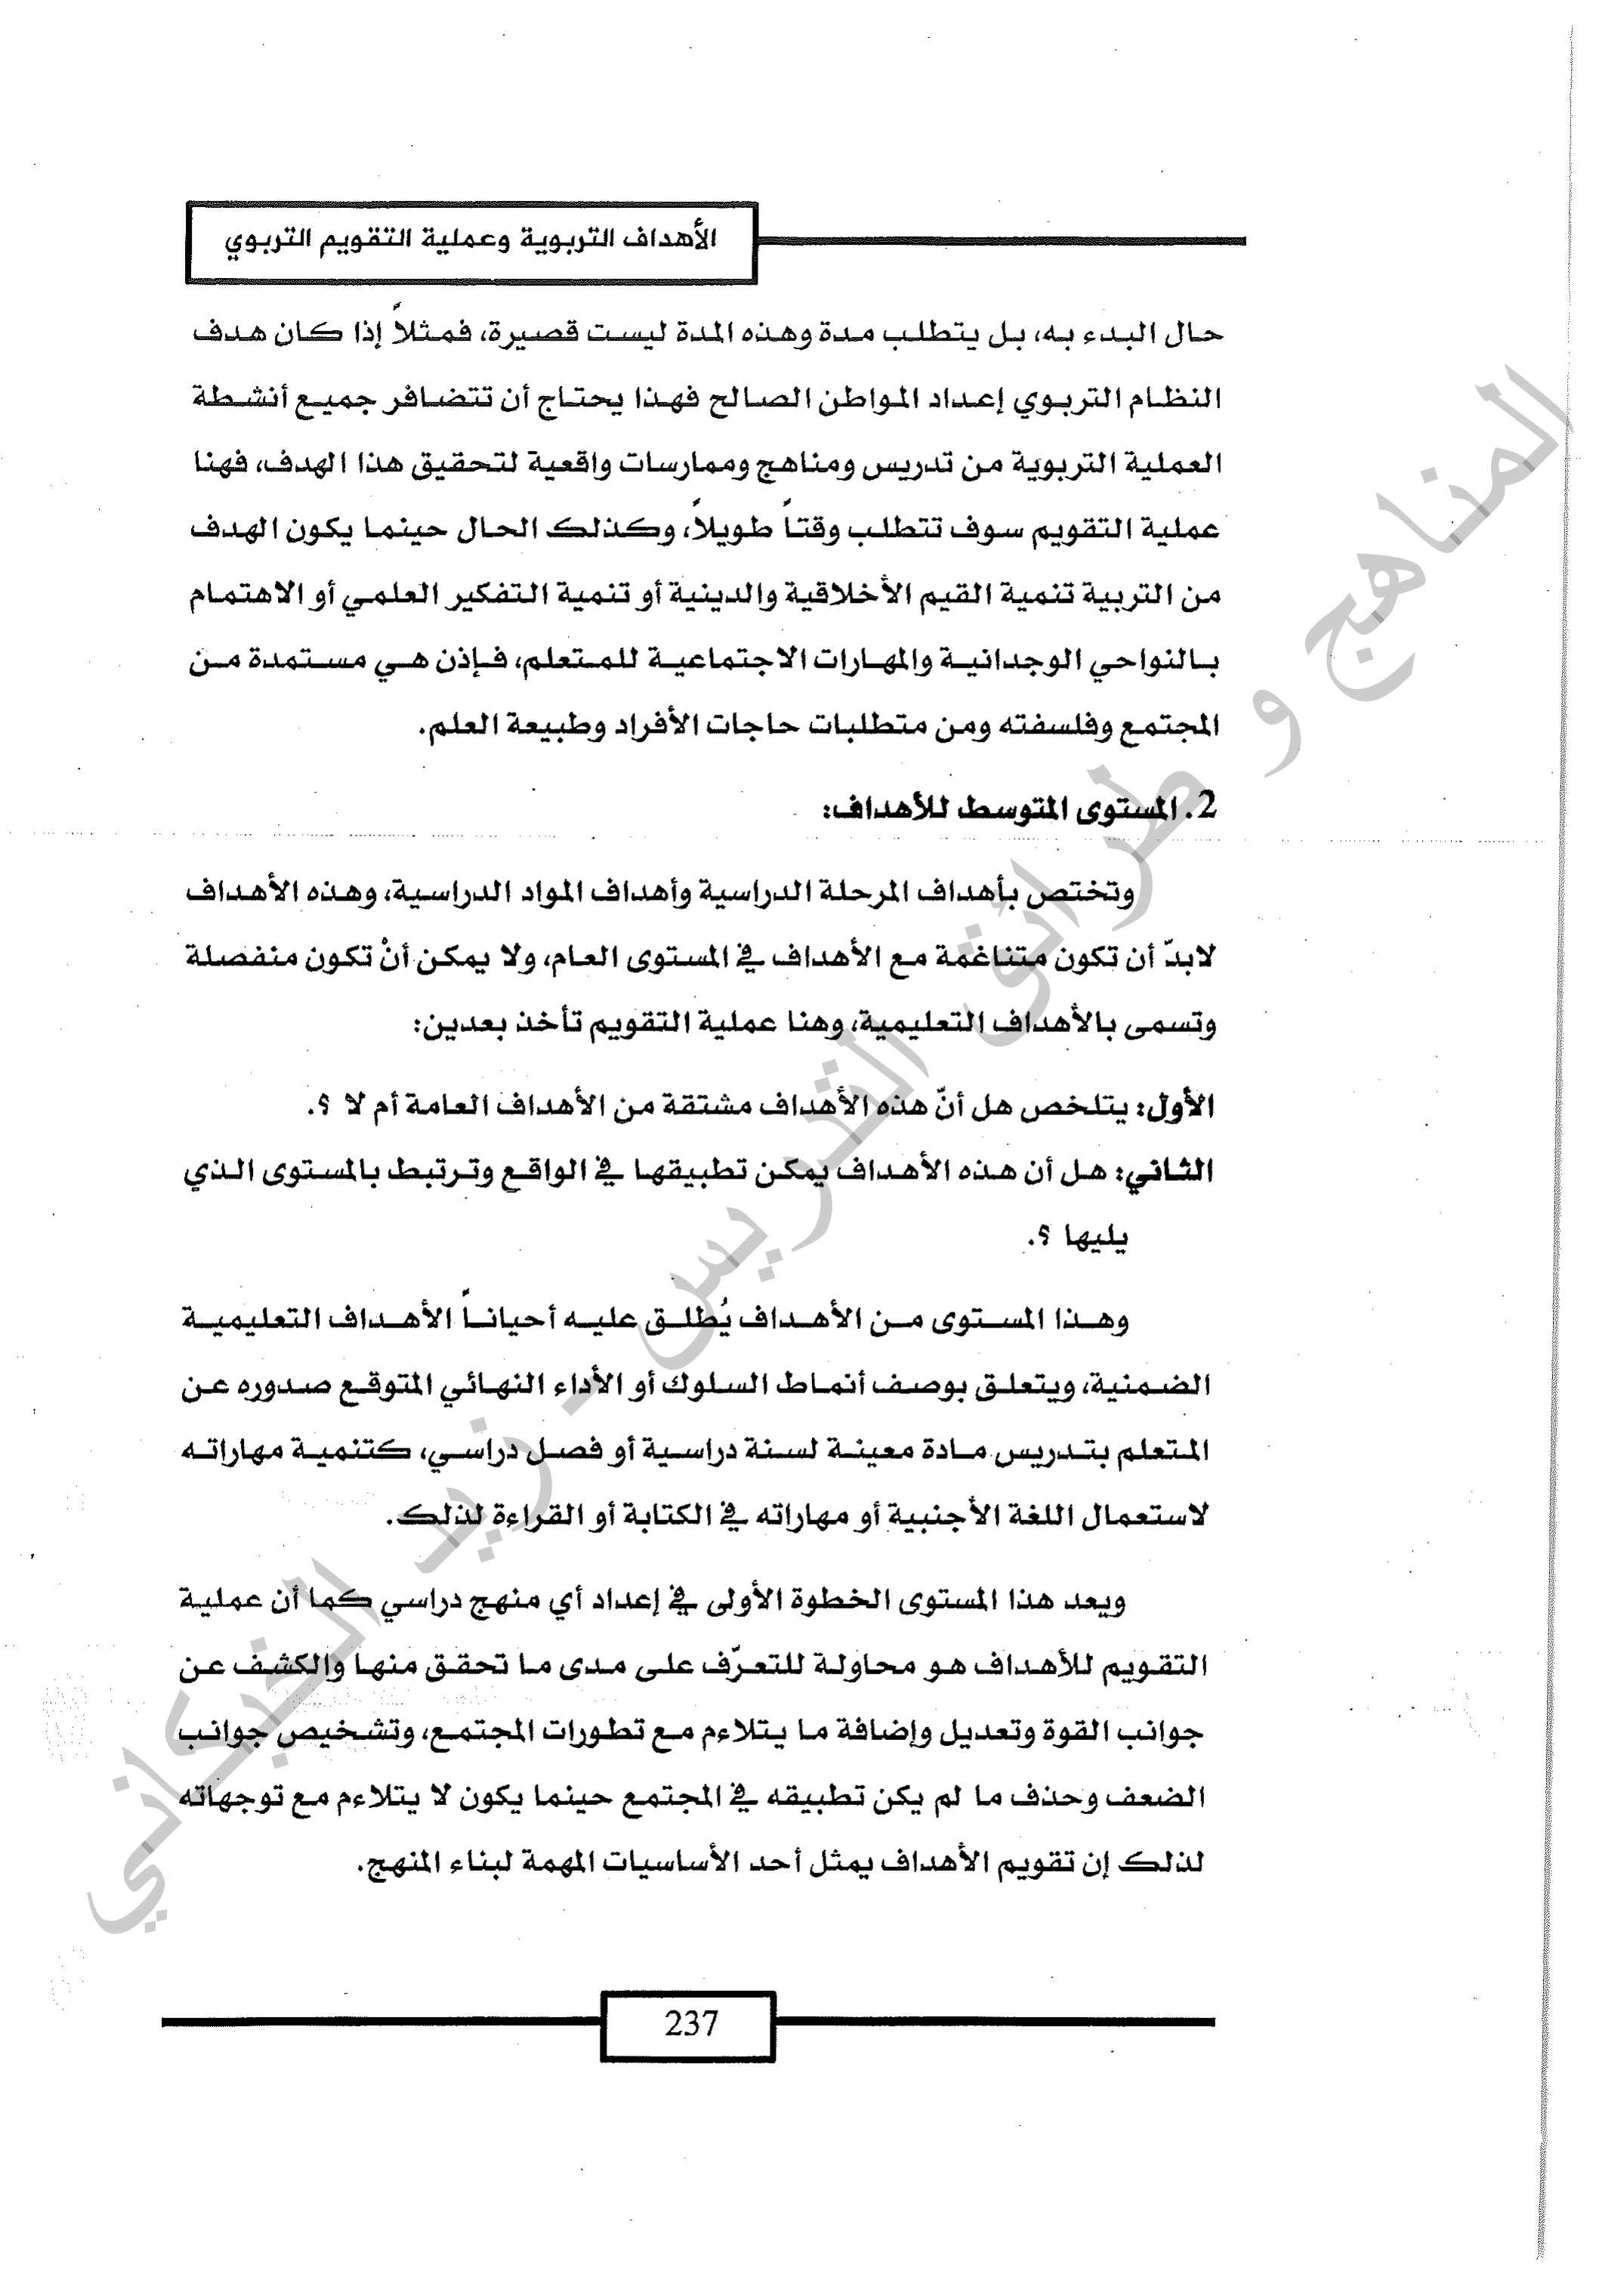 الأهداف التربوية وعملية التقويم التربوي
حال البدء به، بل يتطلب مدة وهذه المدة ليست قصيرة، فمثلاً إذا كان هدف
النظام التربوي إعداد المواطن الصالح فهذا يحتاج أن تتضافر جميع أنشطة
العملية التربوية من تدريس ومناهج وممارسات واقعية لتحقيق هذا الهدف، فهنا
عملية التقويم سوف تتطلب وقتاً طويلاً، وكذلك الحال حينما يكون الهدف
من التربية تنمية القيم الأخلاقية والدينية أو تنمية التفكير العلمي أو الاهتمام
بالنواحي الوجدانية والمهارات الاجتماعية للمتعلم، فإذن هي مستمدة من
المجتمع وفلسفته ومن متطلبات حاجات الأفراد وطبيعة العلم.
2. المستوى المتوسط للأهداف:
وتختص بأهداف المرحلة الدراسية وأهداف المواد الدراسية، وهذه الأهداف
لابدّ أن تكون متناغمة مع الأهداف في المستوى العام، ولا يمكن أنْ تكون منفصلة
وتسمى بالأهداف التعليمية، وهنا عملية التقويم تأخذ بعدين:
الأول: يتلخص هل أنّ هذه الأهداف مشتقة من الأهداف العامة أم لا ؟.
الثاني: هل أن هذه الأهداف يمكن تطبيقها في الواقع وترتبط بالمستوى الذي
يليها ؟.
وهذا المستوى من الأهداف يُطلق عليه أحياناً الأهداف التعليمية
الضمنية، ويتعلق بوصف أنماط السلوك أو الأداء النهائي المتوقع صدوره عن
المتعلم بتدريس مادة معينة لسنة دراسية أو فصل دراسي، كتنمية مهاراته
لاستعمال اللغة الأجنبية أو مهاراته في الكتابة أو القراءة لذلك.
ويعد هذا المستوى الخطوة الأولى في إعداد أي منهج دراسي كما أن عملية
التقويم للأهداف هو محاولة للتعرّف على مدى ما تحقق منها والكشف عن
جوانب القوة وتعديل وإضافة ما يتلاءم مع تطورات المجتمع، وتشخيص جوانب
الضعف وحذف ما لم يكن تطبيقه في المجتمع حينما يكون لا يتلاءم مع توجهاته
لذلك إن تقويم الأهداف يمثل أحد الأساسيات المهمة لبناء المنهج.
237
المناهج و طرائق التدريس - زيد الخيكاني